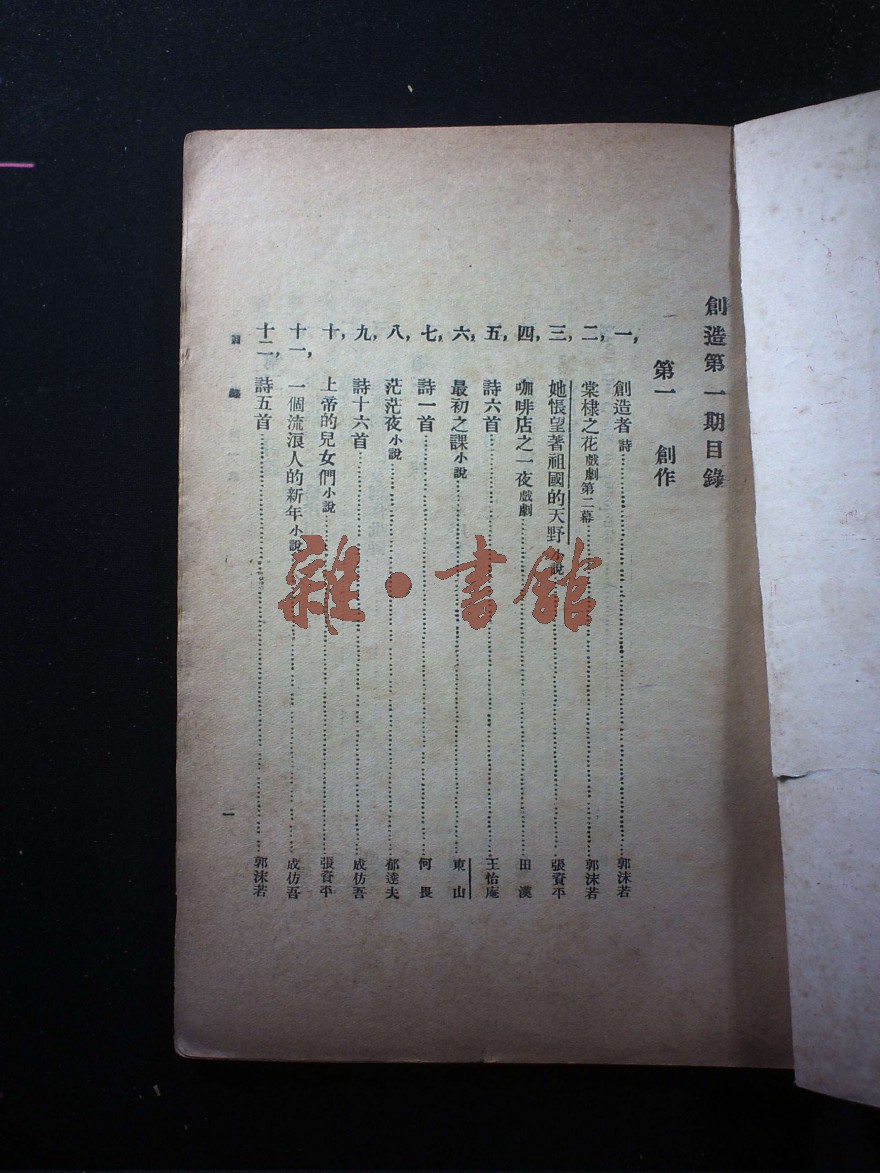 創造第一期目錄
第一 創作
一，創造者 詩……郭沫若
二，棠棣之花 戲劇第二幕……郭沫若
三，她悵望著祖國的天野 小說……張資平
四，咖啡店之一夜 戲劇……田漢
五，詩六首……王怡庵
六，最初之課 小說……東山
七，詩一首……何畏
八，茫茫夜 小說……郁達夫
九，詩十六首……成仿吾
十，上帝的兒女們 小說……張資平
十一，一個流浪人的新年 小說……成仿吾
十二，詩五首……郭沫若
目錄
一
雜·書館